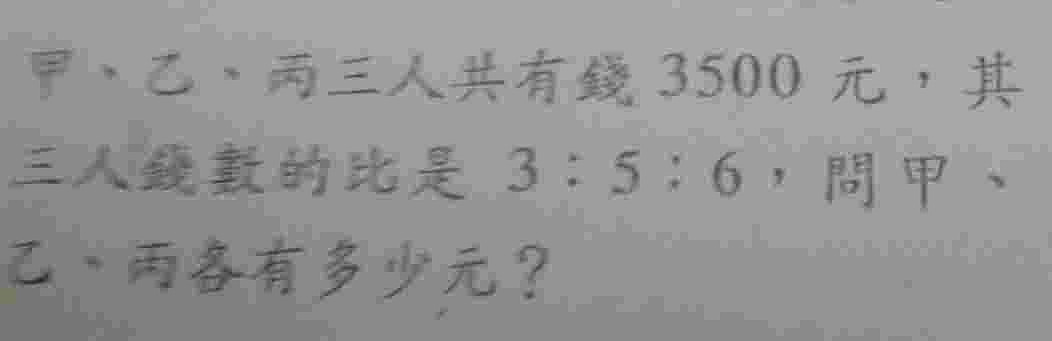 甲、乙、丙三人共有錢 3500 元，其
三人錢數的比是 3：5：6，問甲、
乙、丙各有多少元？